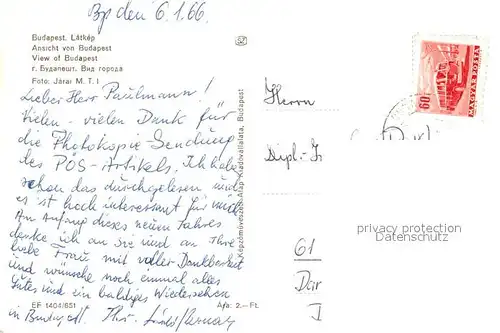 Bp den 6.1.66.
Budapest. Látkép
Ansicht von Budapest
View of Budapest
г. Будапешт. Вид города
Foto: Járai M. T. I
Lieber Herr Paulmann!
Vielen - vielen Dank für
die Photokopie Sendung
des PÖS-Artikels. Ich habe
schon das durchgelesen und
es ist hoch interessant für mich
Am Anfang dieses neuen Jahres
denke ich an Sie und an Ihre
liebe Frau mit voller Dankbarkeit
und wünsche noch einmal alles
Gutes und ein baldiges Wiedersehen
in Budapest. Ihr
EF 1404/651
Ára: 2.— Ft.
Képzőművészeti Alap Kiadóvállalata, Budapest
60f
MAGYAR POSTA
Herrn
Dipl.-
61
Dar
privacy protection
Datenschutz